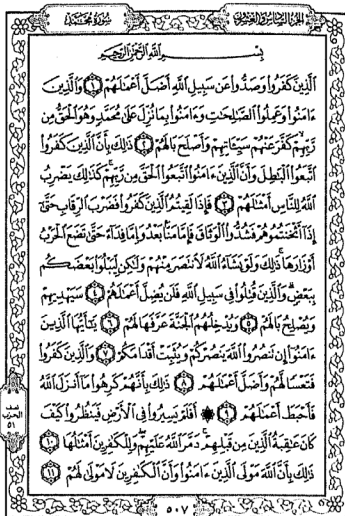 الجزء السادس والعشرون
سورة محمد
بِسْمِ اللَّهِ الرَّحْمَٰنِ الرَّحِيمِ
الَّذِينَ كَفَرُوا وَصَدُّوا عَن سَبِيلِ اللَّهِ أَضَلَّ أَعْمَٰلَهُمْ ١ وَالَّذِينَ
ءَامَنُوا وَعَمِلُوا الصَّٰلِحَٰتِ وَءَامَنُوا بِمَا نُزِّلَ عَلَىٰ مُحَمَّدٍ وَهُوَ الْحَقُّ مِن
رَّبِّهِمْ كَفَّرَ عَنْهُمْ سَيِّـَٔاتِهِمْ وَأَصْلَحَ بَالَهُمْ ٢ ذَٰلِكَ بِأَنَّ الَّذِينَ كَفَرُوا
اتَّبَعُوا الْبَٰطِلَ وَأَنَّ الَّذِينَ ءَامَنُوا اتَّبَعُوا الْحَقَّ مِن رَّبِّهِمْ كَذَٰلِكَ يَضْرِبُ
اللَّهُ لِلنَّاسِ أَمْثَٰلَهُمْ ٣ فَإِذَا لَقِيتُمُ الَّذِينَ كَفَرُوا فَضَرْبَ الرِّقَابِ حَتَّىٰ
إِذَا أَثْخَنتُمُوهُمْ فَشُدُّوا الْوَثَاقَ فَإِمَّا مَنًّا بَعْدُ وَإِمَّا فِدَاءً حَتَّىٰ تَضَعَ الْحَرْبُ
أَوْزَارَهَا ذَٰلِكَ وَلَوْ يَشَاءُ اللَّهُ لَانتَصَرَ مِنْهُمْ وَلَٰكِن لِّيَبْلُوَا بَعْضَكُم
بِبَعْضٍ وَالَّذِينَ قُتِلُوا فِي سَبِيلِ اللَّهِ فَلَن يُضِلَّ أَعْمَٰلَهُمْ ٤ سَيَهْدِيهِمْ
وَيُصْلِحُ بَالَهُمْ ٥ وَيُدْخِلُهُمُ الْجَنَّةَ عَرَّفَهَا لَهُمْ ٦ يَٰأَيُّهَا الَّذِينَ
ءَامَنُوا إِن تَنصُرُوا اللَّهَ يَنصُرْكُمْ وَيُثَبِّتْ أَقْدَامَكُمْ ٧ وَالَّذِينَ كَفَرُوا
فَتَعْسًا لَّهُمْ وَأَضَلَّ أَعْمَٰلَهُمْ ٨ ذَٰلِكَ بِأَنَّهُمْ كَرِهُوا مَا أَنزَلَ اللَّهُ
فَأَحْبَطَ أَعْمَٰلَهُمْ ٩ ۞ أَفَلَمْ يَسِيرُوا فِي الْأَرْضِ فَيَنظُرُوا كَيْفَ
كَانَ عَٰقِبَةُ الَّذِينَ مِن قَبْلِهِمْ دَمَّرَ اللَّهُ عَلَيْهِمْ وَلِلْكَٰفِرِينَ أَمْثَٰلُهَا ١٠
ذَٰلِكَ بِأَنَّ اللَّهَ مَوْلَى الَّذِينَ ءَامَنُوا وَأَنَّ الْكَٰفِرِينَ لَا مَوْلَىٰ لَهُمْ ١١
نصف
الحزب
٥١
٥٠٧